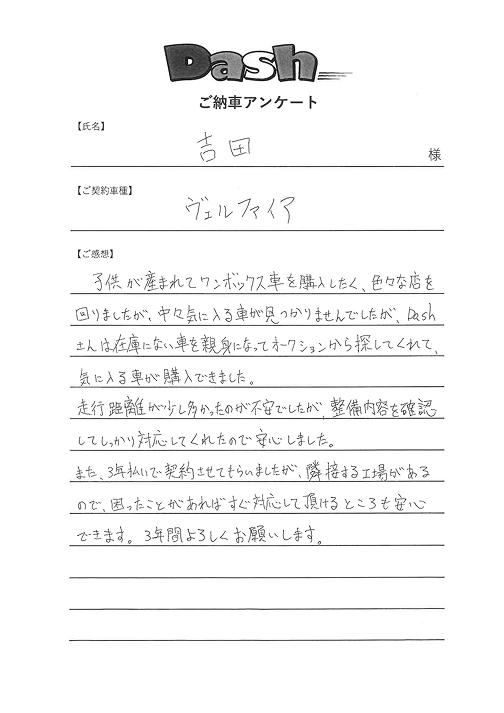 Dash
ご納車アンケート
【氏名】
吉田
様
【ご契約車種】
ヴェルファイア
【ご感想】
子供が産まれてワンボックス車を購入したく、色々な店を
回りましたが、中々気に入る車が見つかりませんでしたが、Dash
さんは在庫にない車を親身になってオークションから探してくれて、
気に入る車が購入できました。
走行距離が少し多かったのが不安でしたが、整備内容を確認
してしっかり対応してくれたので安心しました。
また、3年払いで契約させてもらいましたが、隣接する工場がある
ので、困ったことがあればすぐ対応して頂けるところも安心
できます。3年間よろしくお願いします。